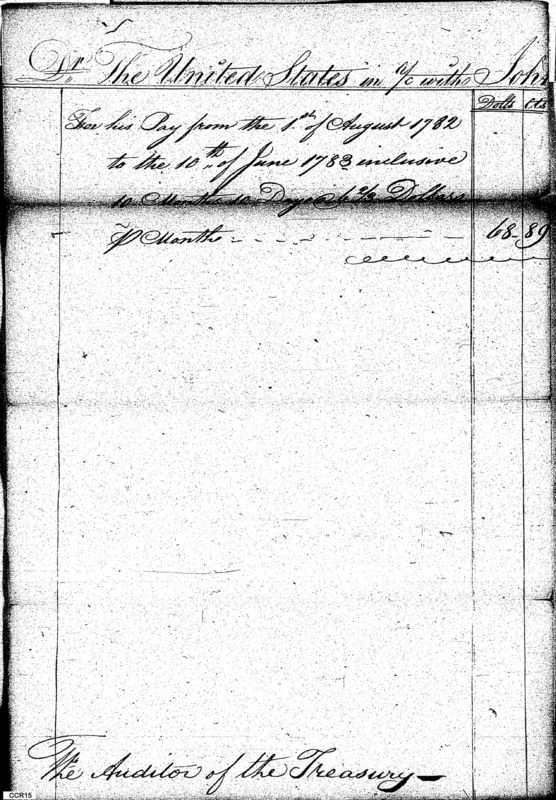 Dr. The United States in a/c with John
Dolls Cts
For his Pay from the 1st of August 1782
to the 10th of June 1783 inclusive
10 Months 10 Days @ 6 2/3 Dollars
⅌ Month - - - - - 68 - 89
The Auditor of the Treasury—
CCR15